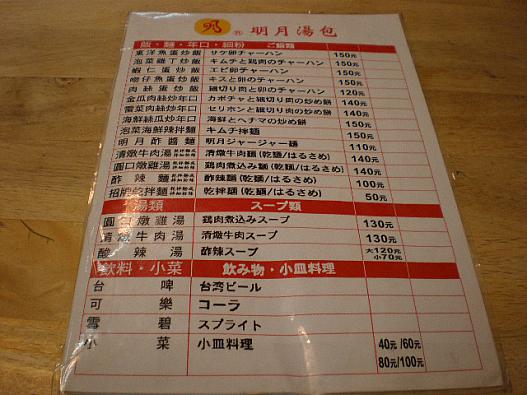 明月湯包
飯・麵・年口・細粉 ご飯類
東洋魚蛋炒飯 サケ卵のチャーハン 150元
泡菜雞丁炒飯 キムチと鶏肉のチャーハン 150元
蝦仁蛋炒飯 エビ卵のチャーハン 150元
吻仔魚蛋炒飯 キスと卵のチャーハン 150元
肉絲蛋炒飯 細切り肉と卵のチャーハン 120元
金瓜肉絲炒年口 カボチャと細切り肉の炒め餅 140元
雪菜肉絲炒年口 セリホンと細切り肉の炒め餅 140元
海鮮絲瓜炒年口 海鮮とヘチマの炒め餅 150元
泡菜海鮮辣拌麵 キムチ拌麺 150元
明月酢醬麵 明月ジャージャー麺 110元
清燉牛肉湯 清燉牛肉麺(乾麺/はるさめ) 140元
圓口燉雞湯 鶏肉煮込み麺(乾麺/はるさめ) 140元
酢辣麵 酢辣麺(乾麺/はるさめ) 100元
招牌乾拌麵 乾拌麺(乾麺/はるさめ) 50元
湯類 スープ類
圓口燉雞湯 鶏肉煮込みスープ 130元
清燉牛肉湯 清燉牛肉スープ 130元
酸辣湯 酢辣スープ 大120元 小70元
飲料・小菜 飲み物・小皿料理
台啤 台湾ビール
可樂 コーラ
雪碧 スプライト
小菜 小皿料理 40元/60元
80元/100元